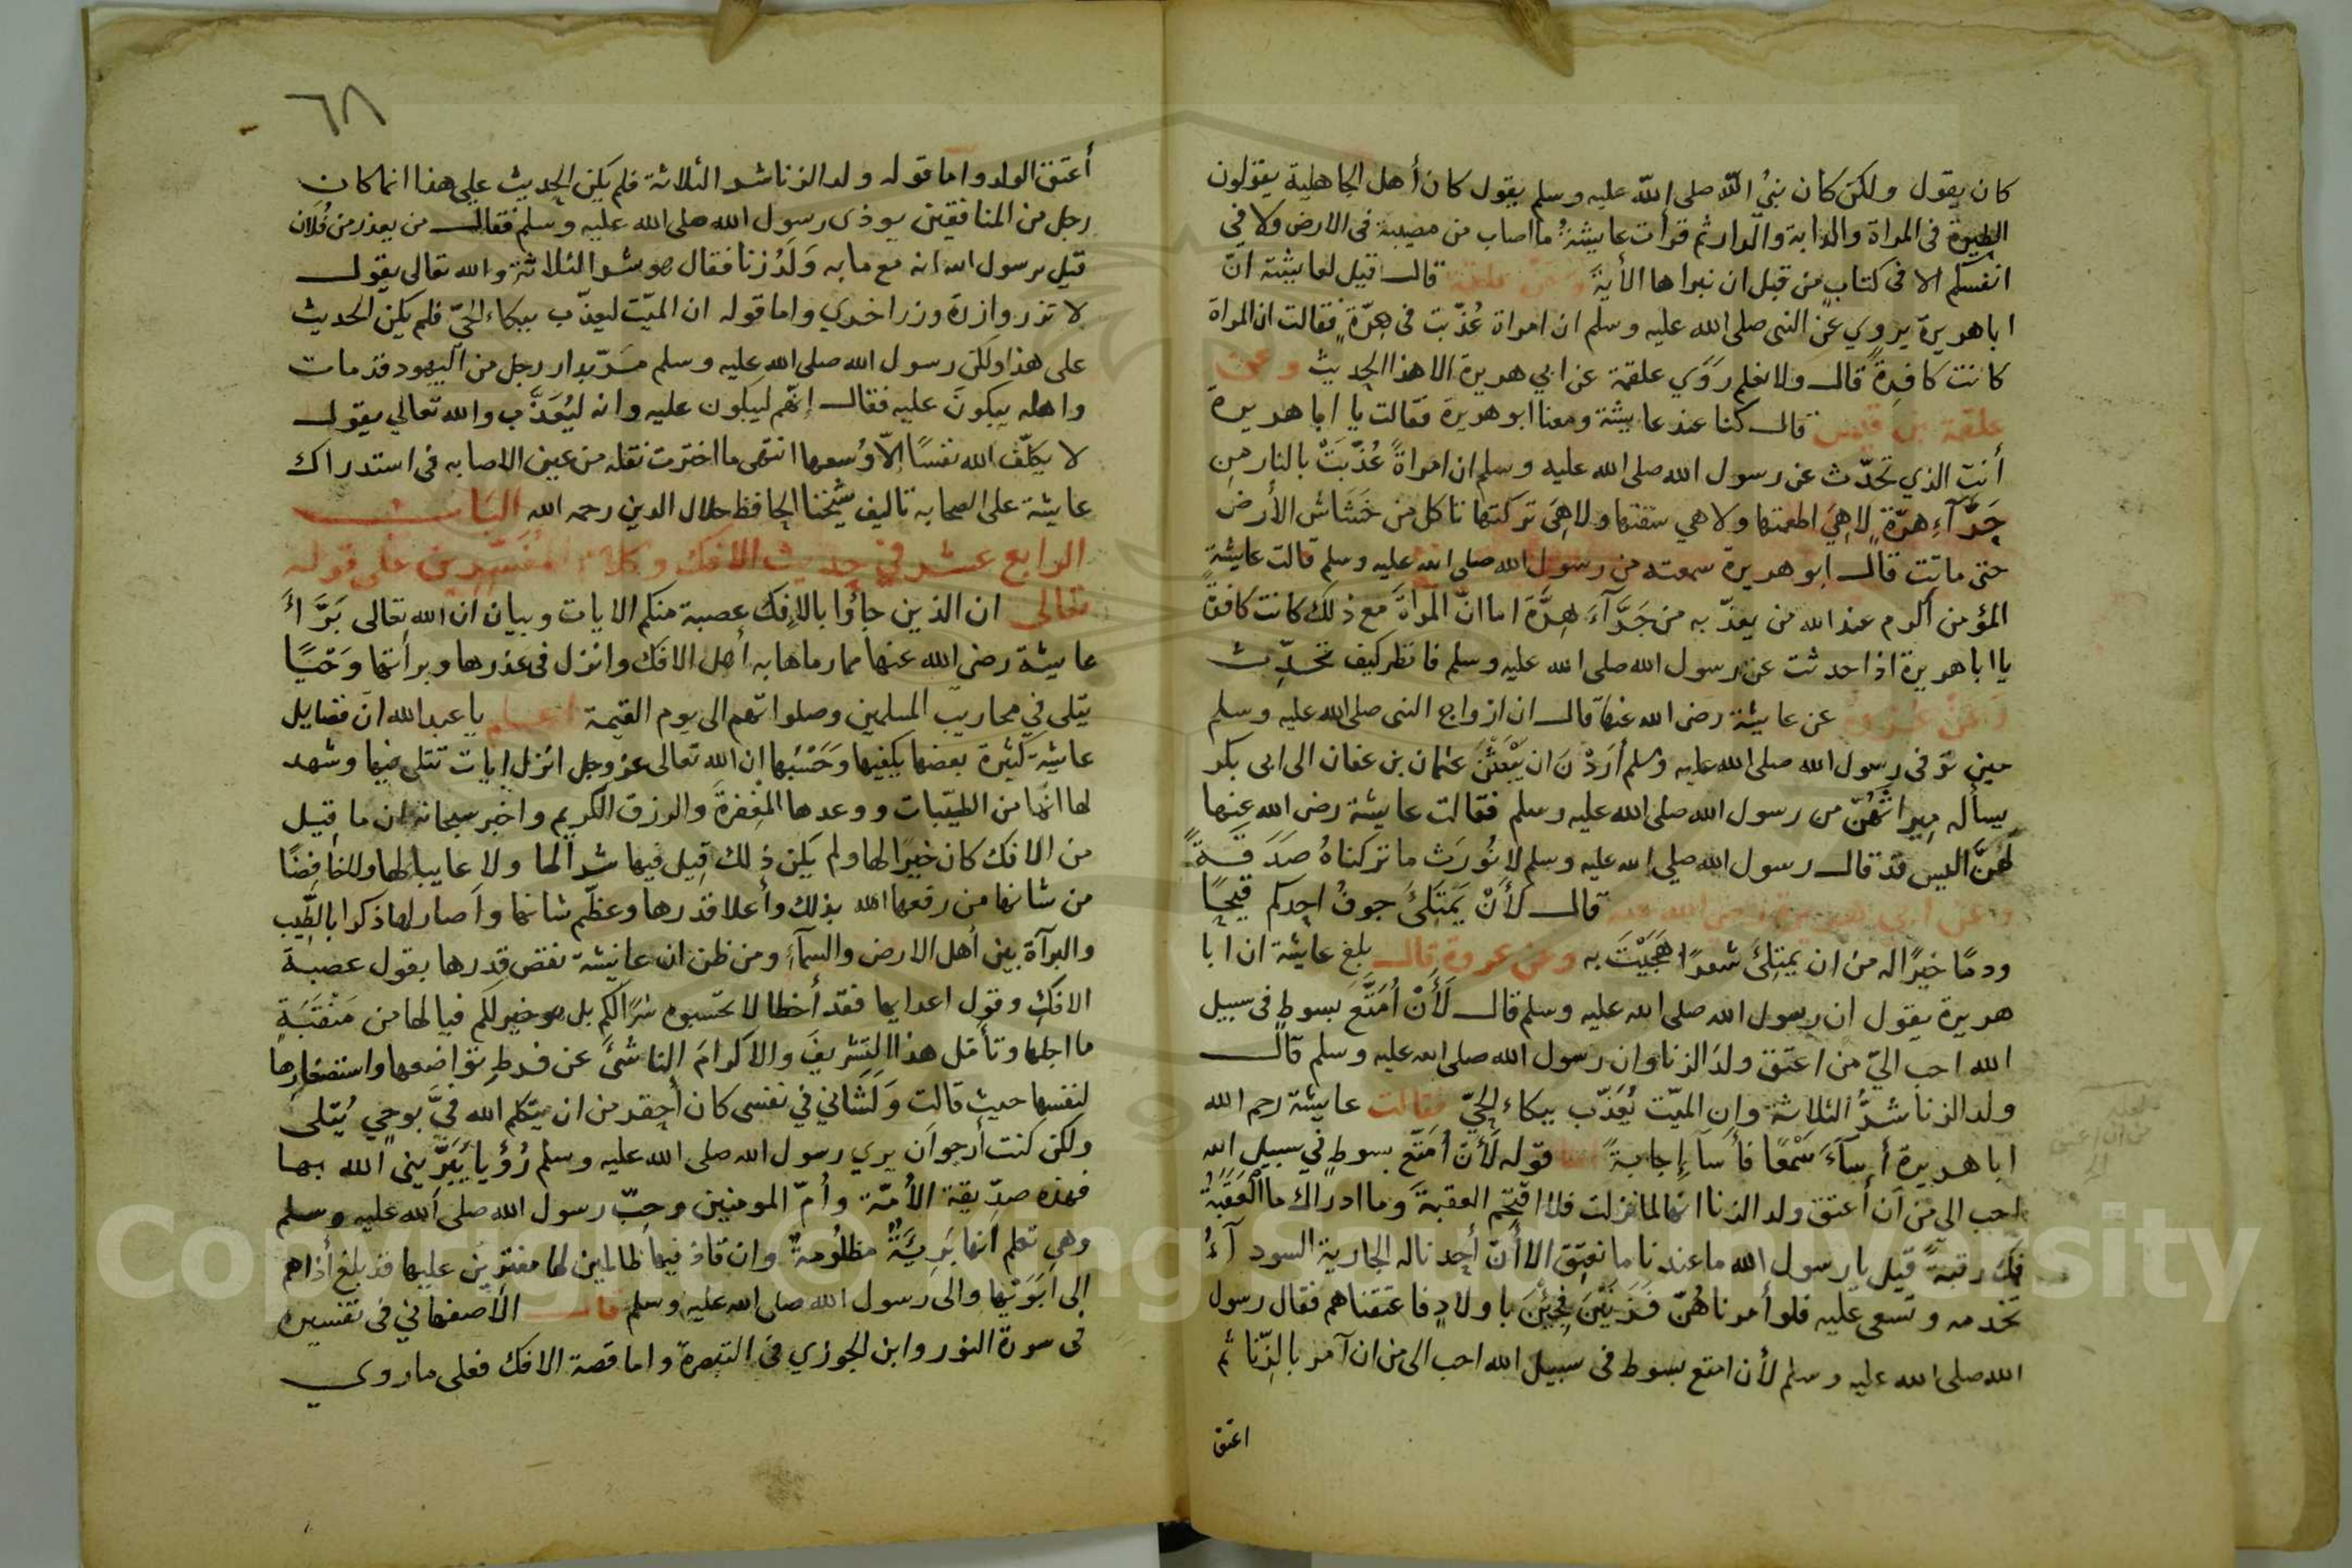 كان يقول ولكن كان نبيُ الله صلى الله عليه وسلم يقول كان أهل الجاهلية يقولون
الطيرة في المراة والدابة والدار ثم قرأت عايشة ما اصاب من مصيبة في الارض ولا في
انفسكم الا في كتاب من قبل ان نبراها الأية وعن علقمة قال قيل لعايشة انّ
ابا هريرة يروي عن النبي صلى الله عليه وسلم ان امراة عُذّبت في هِرّةٍ فقالت ان المراة
كانت كافرةً قال ولا نعلم رَوَي علقمة عن ابي هريرة الا هذا الحديث وعن
علقمة بن قيس قال كنا عند عايشة ومعنا ابو هريرة فقالت يا ابا هريرة
أنت الذي تحدّث عن رسول الله صلى الله عليه وسلم ان امراةً عُذّبَتْ بالنار من
جَرَّآءِ هرّةٍ لا هِيَ اطعمتها ولا هي سقتها ولا هِيَ تركتها تاكل من خَشَاش الأرض
حتى ماتت قال ابو هريرة سمعته من رسول الله صلى الله عليه وسلم قالت عايشة
المؤمن أكرم عند الله من يعذّبه من جَرَّآءِ هِرَّة اما انّ المراةَ مع ذلك كانت كافرة
يا ابا هريرة اذا حدثت عن رسول الله صلى الله عليه وسلم فانظر كيف تحدّث
وَعَنْ عُروة عن عايشة رضى الله عنها قال ان ازواج النبى صلى الله عليه وسلم
حين توفى رسول الله صلى الله عليه وسلم أرَدْنَ ان يَبْعَثْنَ عثمان بن عفان الى ابى بكر
يسأله مِيراثَهُنّ من رسول الله صلى الله عليه وسلم فقالت عايشة رضى الله عنها
لَهُنّ اليس قد قال رسول الله صلي الله عليه وسلم لا نُورَث ما تركناهُ صَدَقَةً
وعن أبي هريرة رضي الله عنه قال لأَنْ يَمتَلئَ جوفُ احدكم قيحًا
ودمًا خيرًا له من ان يمتلئَ شعرًا هَجَيْتَ به وعن عروة قال بلغ عايشة ان ابا
هريرة يقول ان رسول الله صلى الله عليه وسلم قال لَأَنْ أُمَتَّعَ بسوطٍ في سبيل
الله احب اليّ من اعتق ولدَ الزنا وان رسول الله صلى الله عليه وسلم قال
ولد الزنا شرُّ الثلاثة وان الميّت يُعَذّب ببكاء الحيّ فقالت عايشة رحم الله
ابا هريرة أسآءَ سَمْعًا فأساَ إجابةً اما قوله لَأَنْ أُمَتّعَ بسوطٍ في سبيل الله
احب الي من أن أعتق ولد الزنا انها لما نزلت فلا اقتحم العقبة وما ادراك ما العَقَبَةُ
فكّ رقبةً قيل يا رسول الله ما عندنا ما نعتِق الا أنّ أحدنا له الجارية السودآءُ
تخدمه وتسعى عليه فلو أمرناهُنّ فَزَنَيْنَ فجِئْنَ باولادٍ فاعتقناهم فقال رسول
الله صلى الله عليه وسلم لأن امتع بسوط في سبيل الله احب الى من ان آمر بالزّنا ثم
اعتق
٦٨
أعتق الولد واما قوله ولد الزنا شر الثلاثة فلم يكن الحديث على هذا انما كان
رجل من المنافقين يوذى رسول الله صلى الله عليه وسلم فقال من يعذر من فُلان
قيل يرسول الله انه مع ما به وَلَدُ زنا فقال هو شر الثلاثة والله تعالى يقول
لا تزر وازرة وزر اخري واما قوله ان الميّت ليعذّب ببكاء الحيّ فلم يكن الحديث
على هذا ولكن رسول الله صلى الله عليه وسلم مَرّ بدار رجل من اليهود قد مات
واهله يبكونَ عليه فقال إنّهم ليبكون عليه وانه ليُعَذَّب والله تعالي يقول
لا يكلّف الله نفسًا إلاّ وُسعها انتهى ما اخترت نقله من عين الاصابه فى استدراك
عايشة على الصحابه تاليف شيخنا الحافظ جلال الدين رحمه الله البَابُ
الرابع عشر في حديث الافك وكلام المفسّرين على قوله
تعالى ان الذين جاؤا بالإفك عصبة منكم الايات وبيان ان الله تعالى بَرَّأَ
عايشة رضى الله عنها مما رماها به أهل الافك وانزل فى عذرها وبرأتها وَحْيًا
يتلى في محاريب المسلمين وصلواتهم الى يوم القيمة اعلم يا عبد الله ان فضايل
عايشة كثيرة بعضها يكفيها وَحَسْبها ان الله تعالى عز وجل انزل ايات تتلى فيها وشهد
لها انّها من الطيّبات ووعدها المغفرة والرزق الكريم واخبر سبحانه ان ما قيل
من الافك كان خيرًا لها ولم يكن ذلك قيل فيها شرالها ولا عايبا لها ولا خافِضًا
من شانها من رفعها الله بذلك وأعلا قدرها وعظّم شانها واصار لها ذكرا بالطّيب
والبرآة بين أهل الارض والسمآءِ ومن ظن ان عايشة نقص قدرها بقول عصبة
الافك وقول اعدايها فقد أخطا لا تحسبوه شرّا لكم بل هو خير لكم فيا لها من مَنْقَبَةٍ
ما اجلها وتأمّل هذا التشريفَ والاكرامَ الناشئَ عن فرطِ تواضعها واستصغارها
لنفسها حيث قالت وَلَشَاني في نفسى كان أحقر من ان يتكلم الله فيَّ بوحيٍ يُتلى
ولكن كنت أرجوا ان يري رسول الله صلى الله عليه وسلم رُؤيا يُبَرِّيني الله بها
فهذه صدّيقة الأمّة وأمّ المومنين وحِبّ رسول الله صلى الله عليه وسلم
وهي تعلم انها بَرِيَّةٌ مظلُومةٌ وان قاذفيها ظالمين لها مفترين عليها قد بلغ أذاهم
إلى ابَوَيْها والى رسول الله صلى الله عليه وسلم قال الاصفهاني في تفسيره
فى سورة النور وابن الجوزي في التبصرة واما قصة الافك فعلى ما روي
Copyright © King Saud University